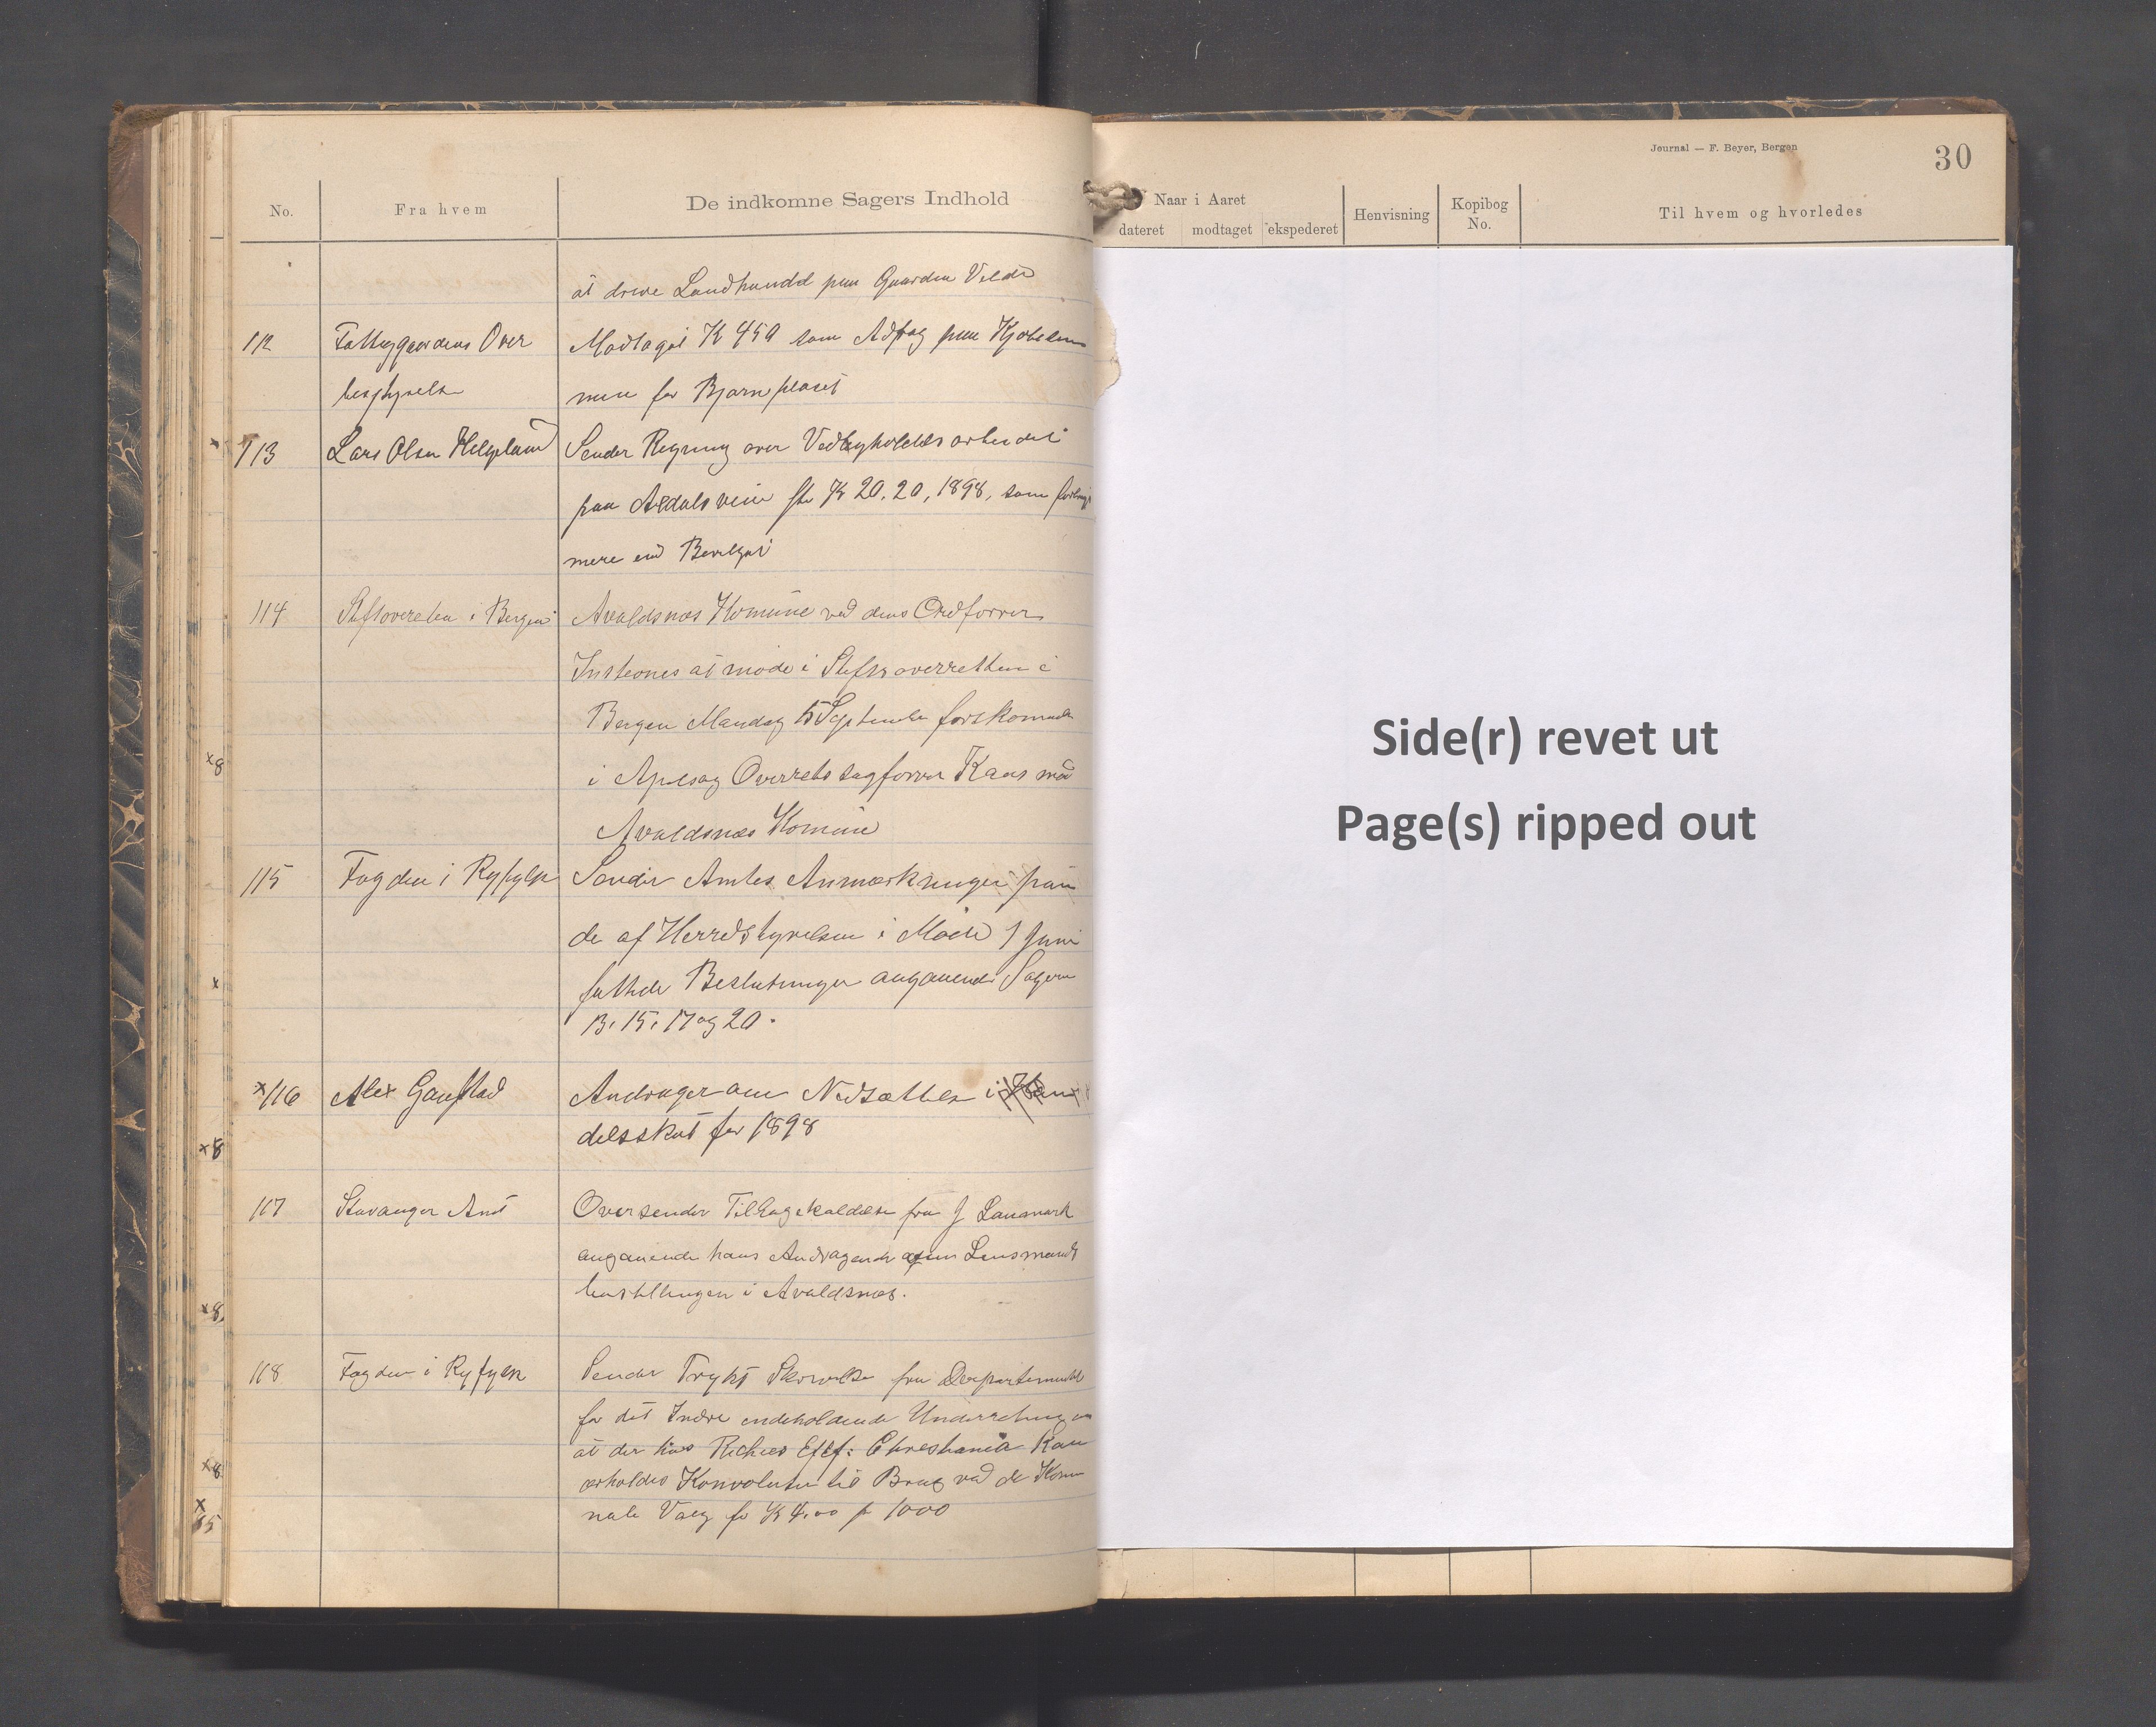 No. Fra hvem De indkomne Sagers Indhold
at drive Landhandel paa Gaarden Velde
112 Fattiggaardens Over Modtaget K 450 som Afdrag paa Kjøbesum
bestyrelse men for Bjørnplaset
113 Lars Olsen Helgeland Sender Regning over Vedligholdelsarbeidet
paa Aedalsveien K 20.20, 1898, som
mere end Bevilget
114 Stiftsoveretten i Bergen Avaldsnæs Komune ved dens Ordfører
Instevnes at møde i Stiftsoverretten i
Bergen Mandag 15 September
i Apelsag Overretssagfører Kaas mod
Avaldsnæs Komune
115 Fogden i Ryfylke Sender Amtets Anmærkninger paa
de af Herredstyrelsen i Møde 1 Juni
fattede Beslutninger angaaende Sagerne
13, 15, 17 og 20.
x 116 Alex Gaustad Andrager om Nedsættelse i
delsskat for 1898
117 Stavanger Amt Oversender Tilbagekaldelse fra J Lanmark
angaaende hans Andragende om Lensmands
bestillingen i Avaldsnæs.
118 Fogden i Ryfylke Sender Trykt Skrivelse fra Departementet
for det Indre indeholdende Underretning om
at der hos Richies Eftf: Christiania Kan
erholdes Konvolutter til Brug ved de Komu
nale Valg for K 4.00 pr 1000
x
x8
x
x8
x8
x8
x
15
Journal — F. Beyer, Bergen
30
Naar i Aaret
dateret modtaget ekspederet Henvisning Kopibog No. Til hvem og hvorledes
Side(r) revet ut
Page(s) ripped out